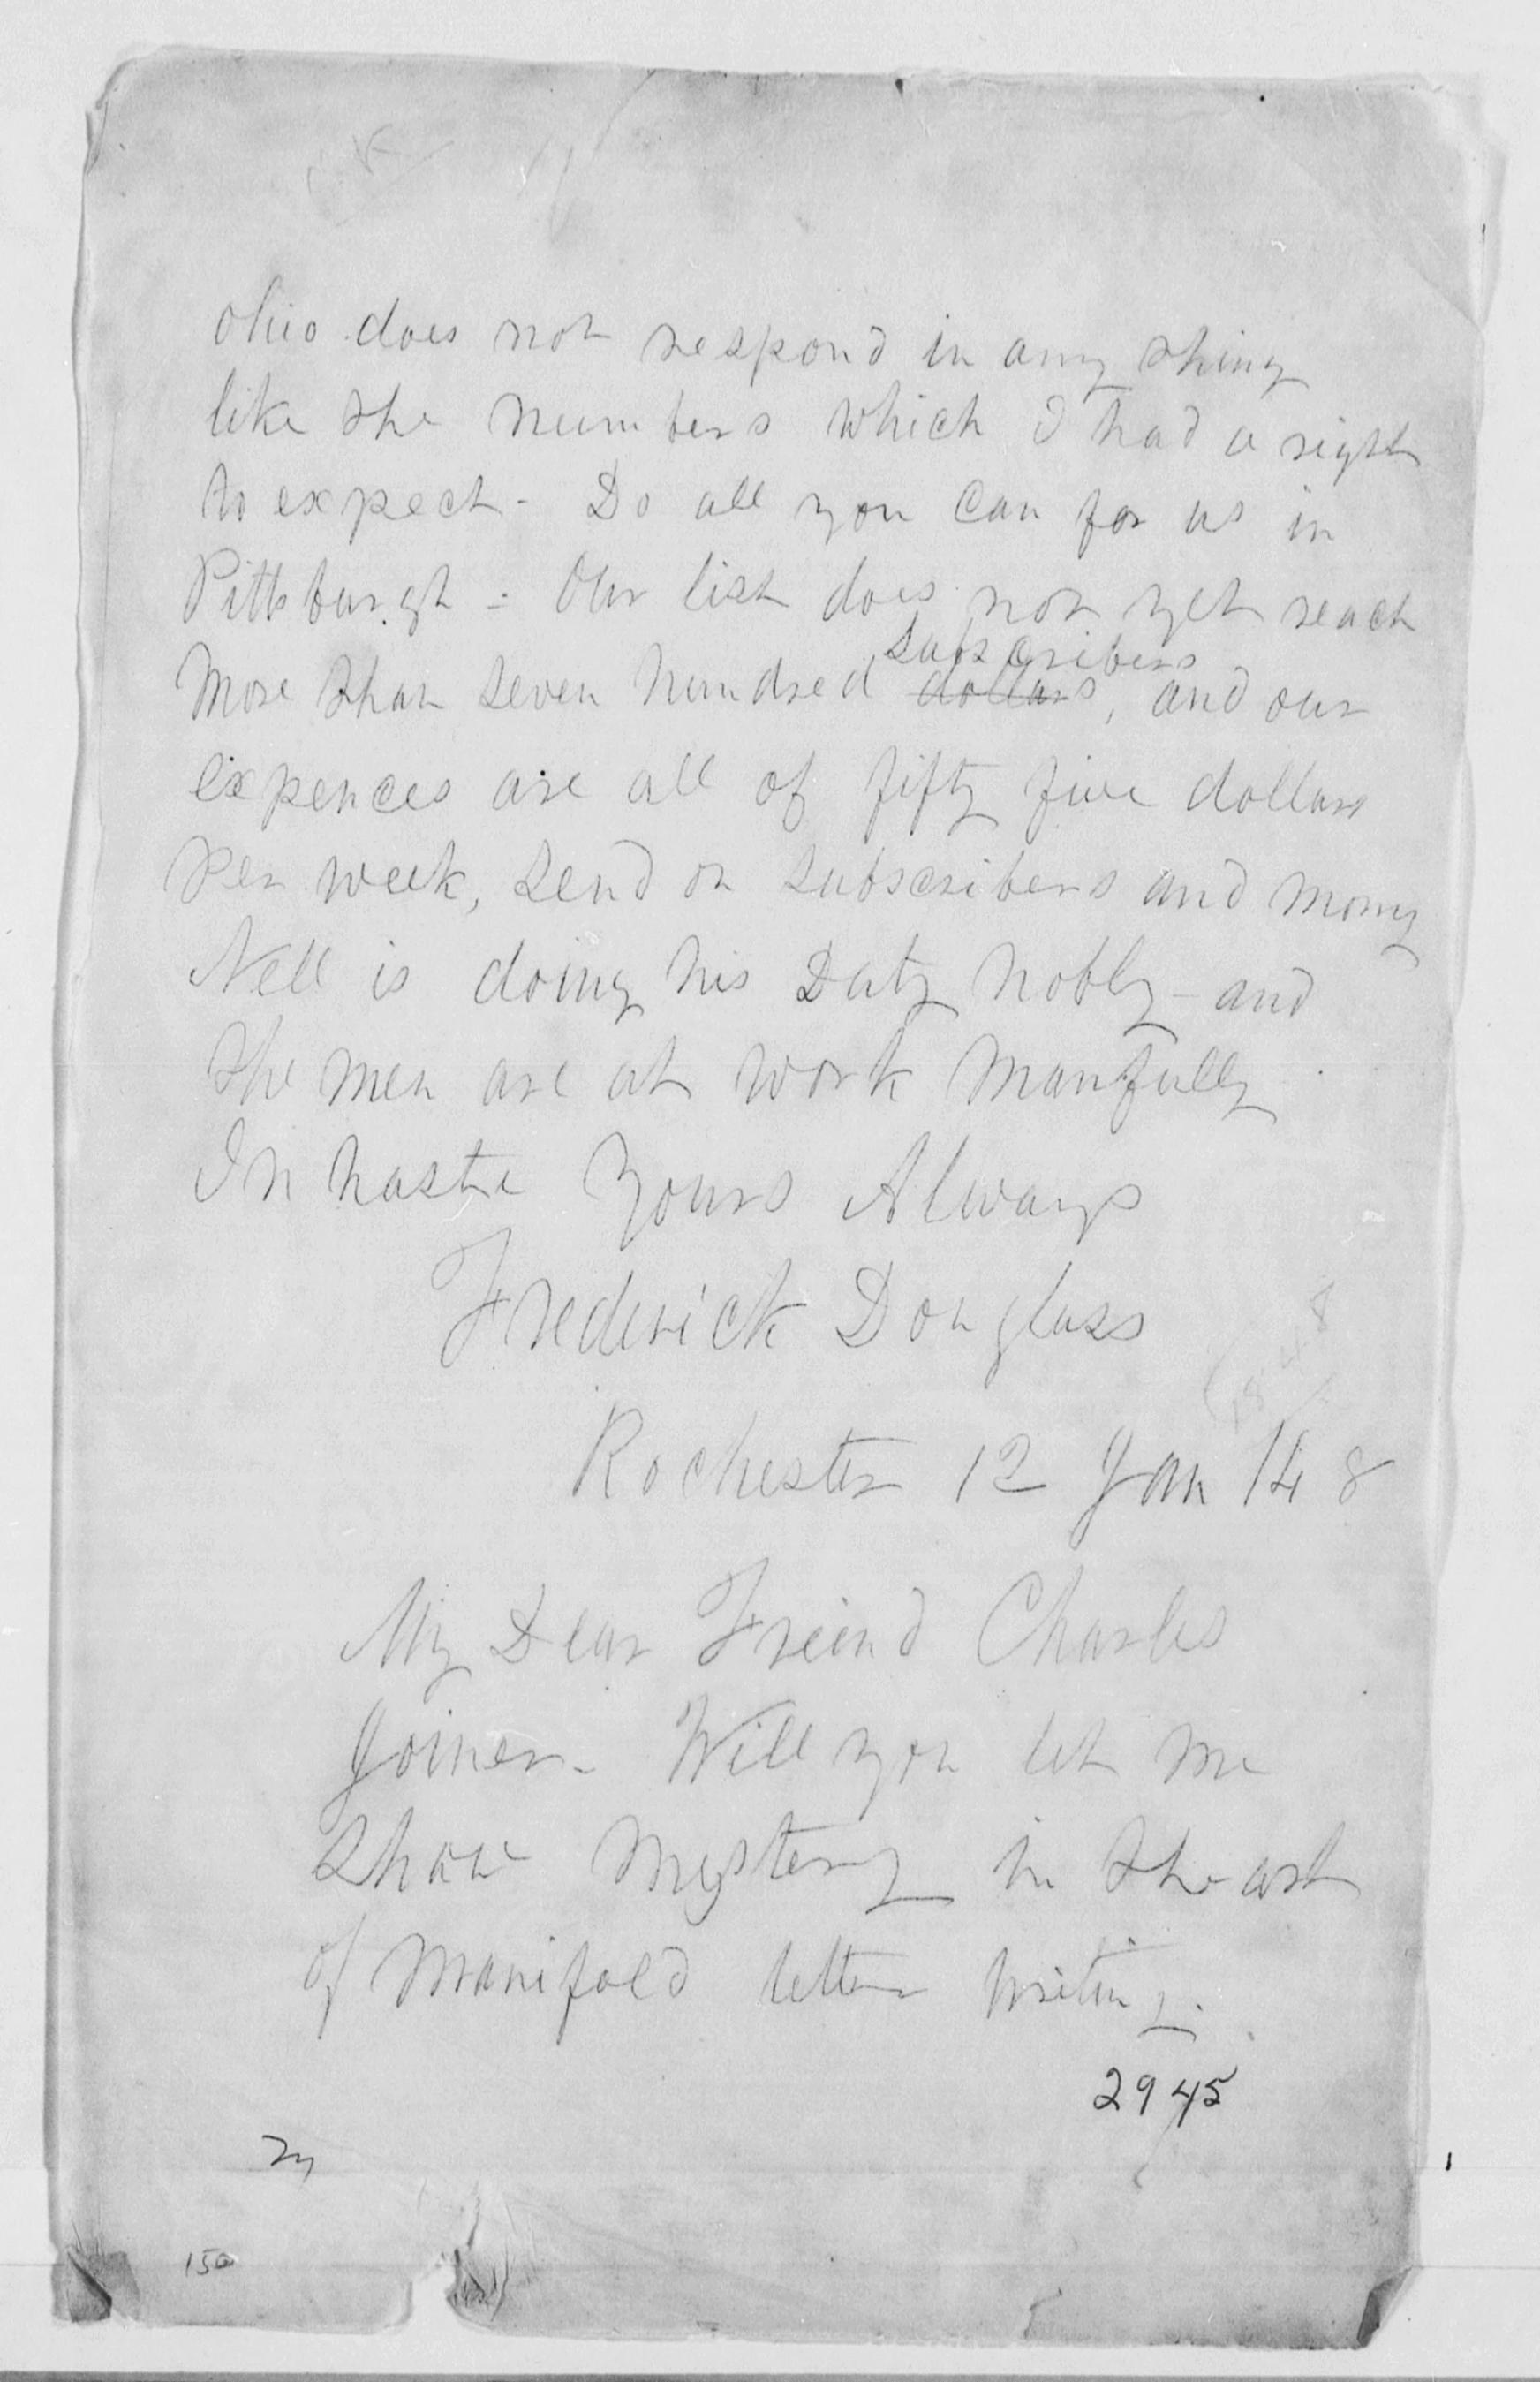 Ohio does not respond in any thing
like the numbers which I had a right
to expect - Do all you can for us in
Pittsburgh = Our list does not yet reach
subscribers
more than seven hundred dollars, and our
expences are all of fifty five dollars
per week, send on subscribers and mony
Nell is doing his Duty nobly - and
the men are at work manfully
In haste Yours Always
Frederick Douglass
(1848)
Rochester 12 Jan /48
My Dear Freind Charles
Joiner - Will you let me
Show mystery in the art
of manifold letter writing.
2945
150